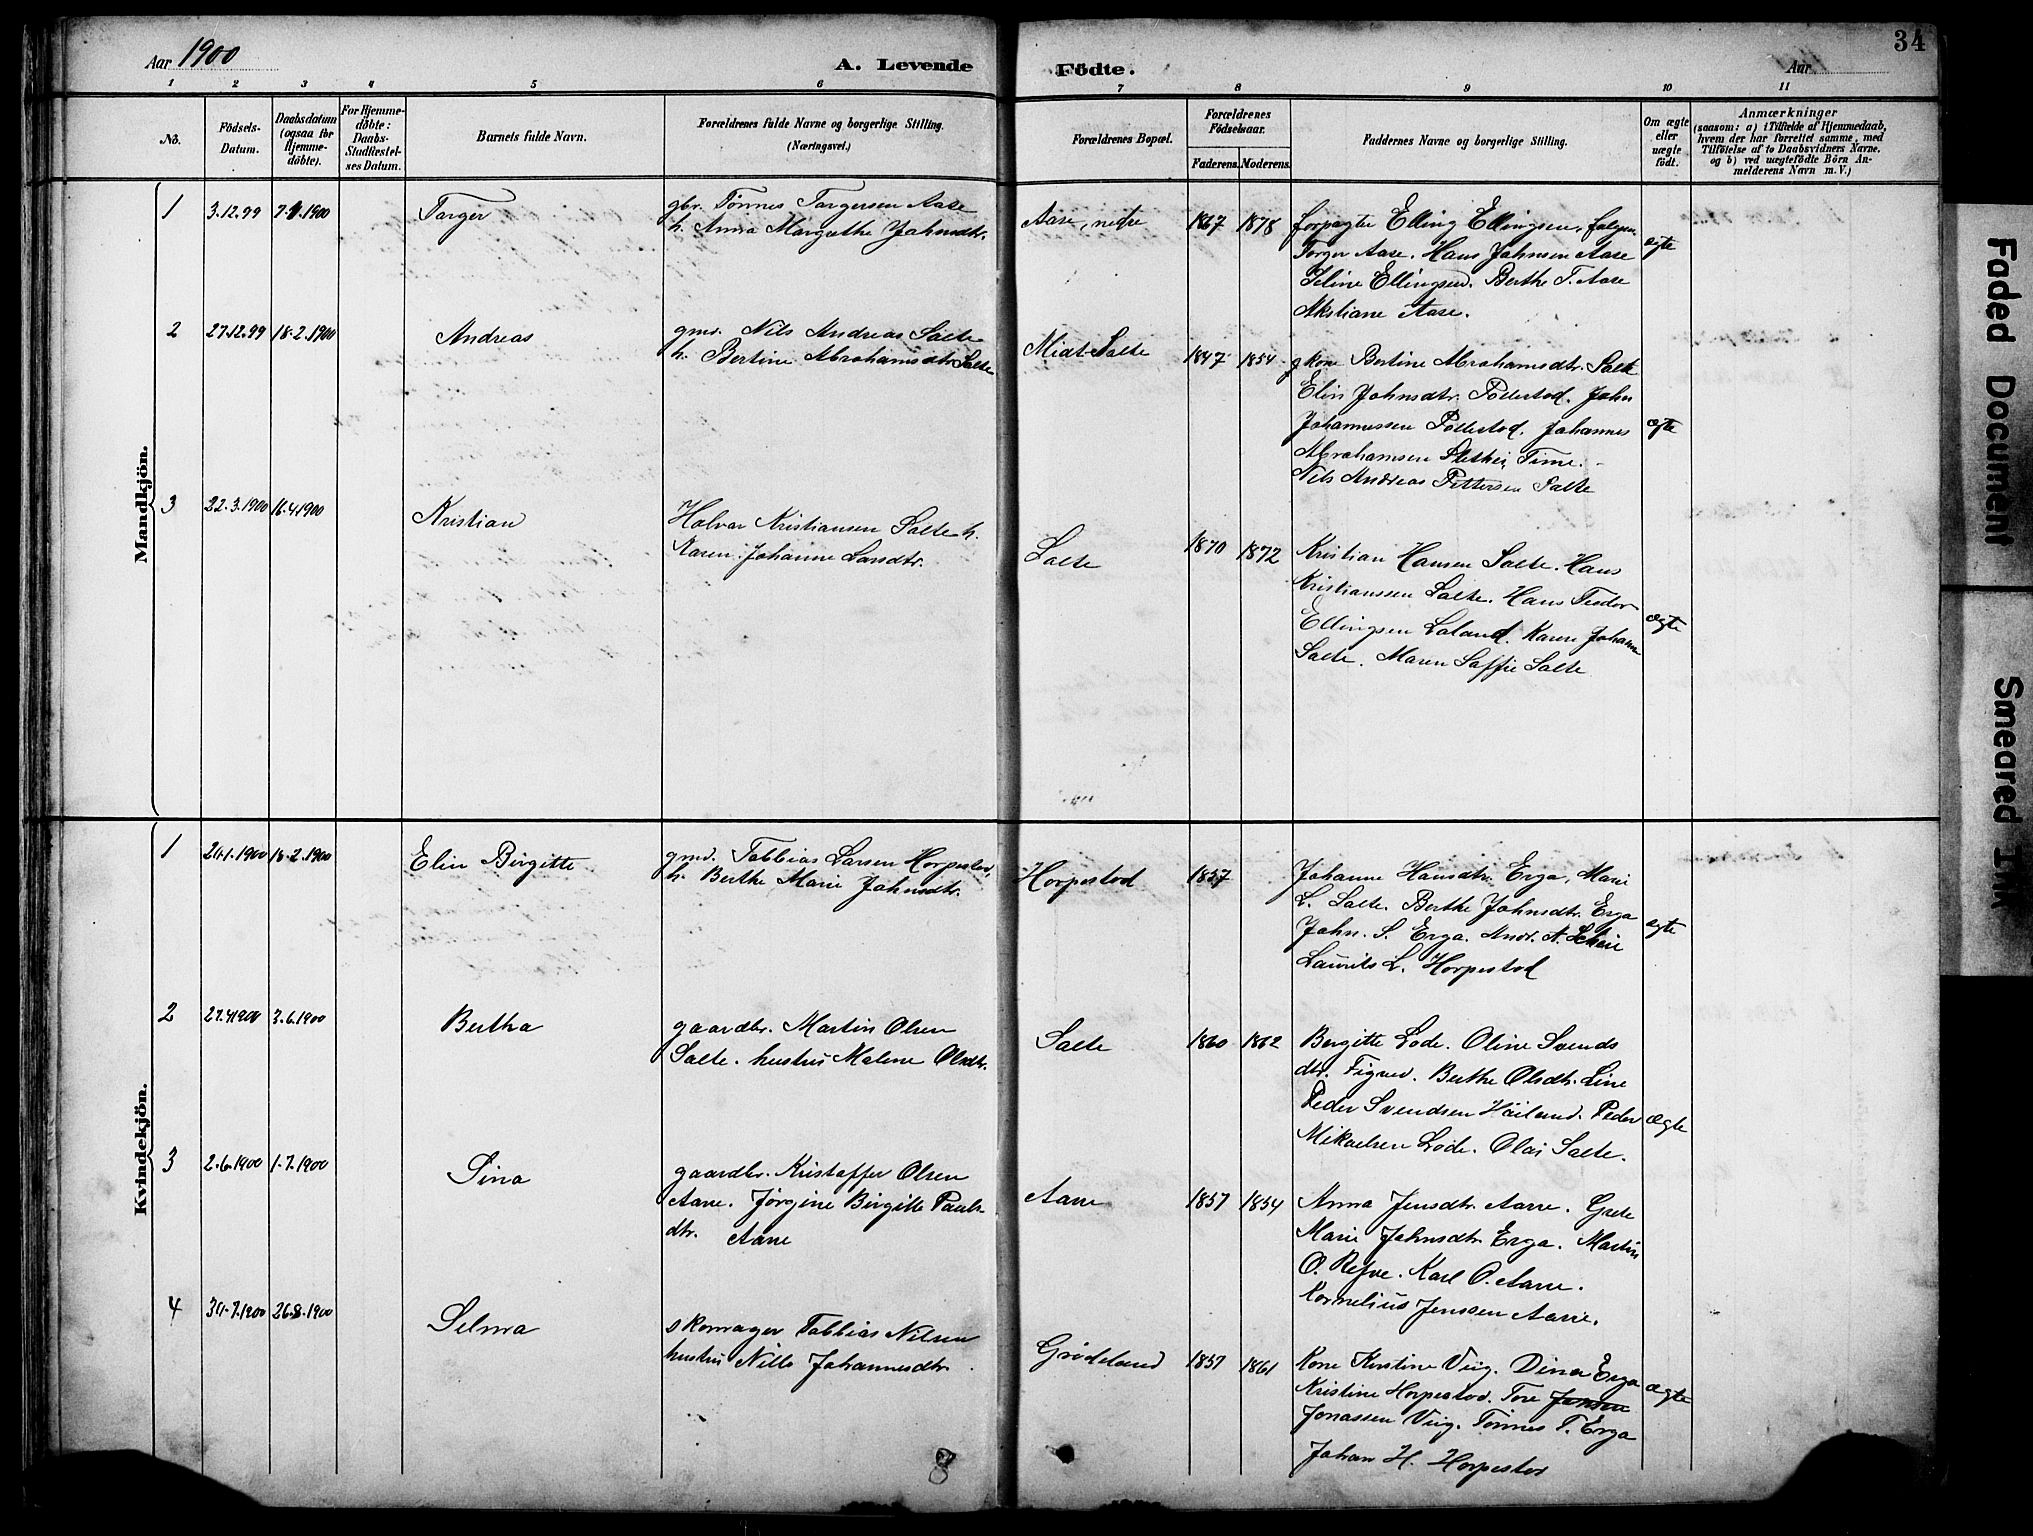 Aar 1900
A. Levende
Födte.
Aar
34
1 2 3 4 5 6 7 8 9 10 11
No.
Födsels-
Datum.
Daabsdatum
(ogsaa for
Hjemme-
döbte).
For Hjemme-
döbte:
Daabs-
Stadfæstel-
ses Datum.
Barnets fulde Navn.
Forældrenes fulde Navne og borgerlige Stilling.
(Næringsvei.)
Forældrenes Bopæl.
Forældrenes
Födselsaar.
Faderens. Moderens.
Faddernes Navne og borgerlige Stilling.
Om ægte
eller
uægte
födt.
Anmærkninger
(saasom: a) i Tilfælde af Hjemmedaab,
hvem der har forrettet samme, med
Tilföielse af to Daabsvidners Navne,
og b) ved uægtefödte Börn An-
melderens Navn m. V.)
Mandkjön.
1 3.12.99 7.1.1900 Torger
gbr. Tönnes Torgersen Aase
h. Anna Margrethe Jahnsdtr.
Aase, nedre 1867 1878
forpagter Elling Ellingsen,
Torger Aase. Hans Jahnsen Aase
Seline Ellingsen. Berthe T. Aase
Aase.
ægte
2 27.12.99 18.2.1900 Andreas
gmd. Nils Andreas Salte
h. Bertine Abrahamsdtr. Salte
Midt-Salte 1847 1854
g.kone Bertine Abrahamsdtr. Salte
Elin Johnsdtr. Pollestad. John
Johannessen Pollestad. Johannes
Abrahamsen Time.
Nils Andreas Pettersen Salte
ægte
3 22.3.1900 16.4.1900 Kristian
Halvar Kristiansen Salte h.
Karen Johanne Larsdtr.
Salte 1870 1872
Kristian Hansen Salte. Hans
Kristianssen Salte. Hans Teodor
Ellingsen Laland. Karen Johanne
Salte. Maren Saffie Salte
ægte
Kvindekjön.
1 21.1.1900 18.2.1900 Elin Birgitte
gmd. Tobbias Larsen Horpestad,
h. Berthe Marie Jahnsdtr.
Horpestad 1857
Johanne Hansdtr. Erga, Marie
L. Salte. Berthe Jahnsdtr. Erga
Jahn. S. Erga. Andr. A.
Laurits L. Horpestad
ægte
2 27.4.1900 3.6.1900 Bertha
gaardbr. Martin Olsen
Salte. hustru Malene Olsdtr.
Salte 1860 1862
Bergitte Lode. Oline Svends
dtr. Tigved. Berthe Olsdtr. Line
Peder Svendsen Häiland. Peder
Mikaelsen Lode. Olai Salte.
ægte
3 2.6.1900 1.7.1900 Sina
gaardbr. Kristaffer Olsen
Aarre. Jørgine Birgitte Pauls-
dtr. Aarre
Aarre 1857 1854
Anna Jensdtr. Aarre. Grete
Marie Jahnsdtr. Erga. Martin
O. Refve. Karl O. Aarre.
Kornelius Jenssen Aarre.
4 30.7.1900 26.8.1900 Selma
skomager Tobbias Nilsen
hustru Nille Johannesdtr.
Grødeland 1857 1861
Kone Kirstine Viig. Dina Erga
Kristine Horpestad. Tore Jensen
Jonassen Viig. Tönnes T. Erga
Johan H. Horpestad
ægte
Faded Document
Smeared Ink